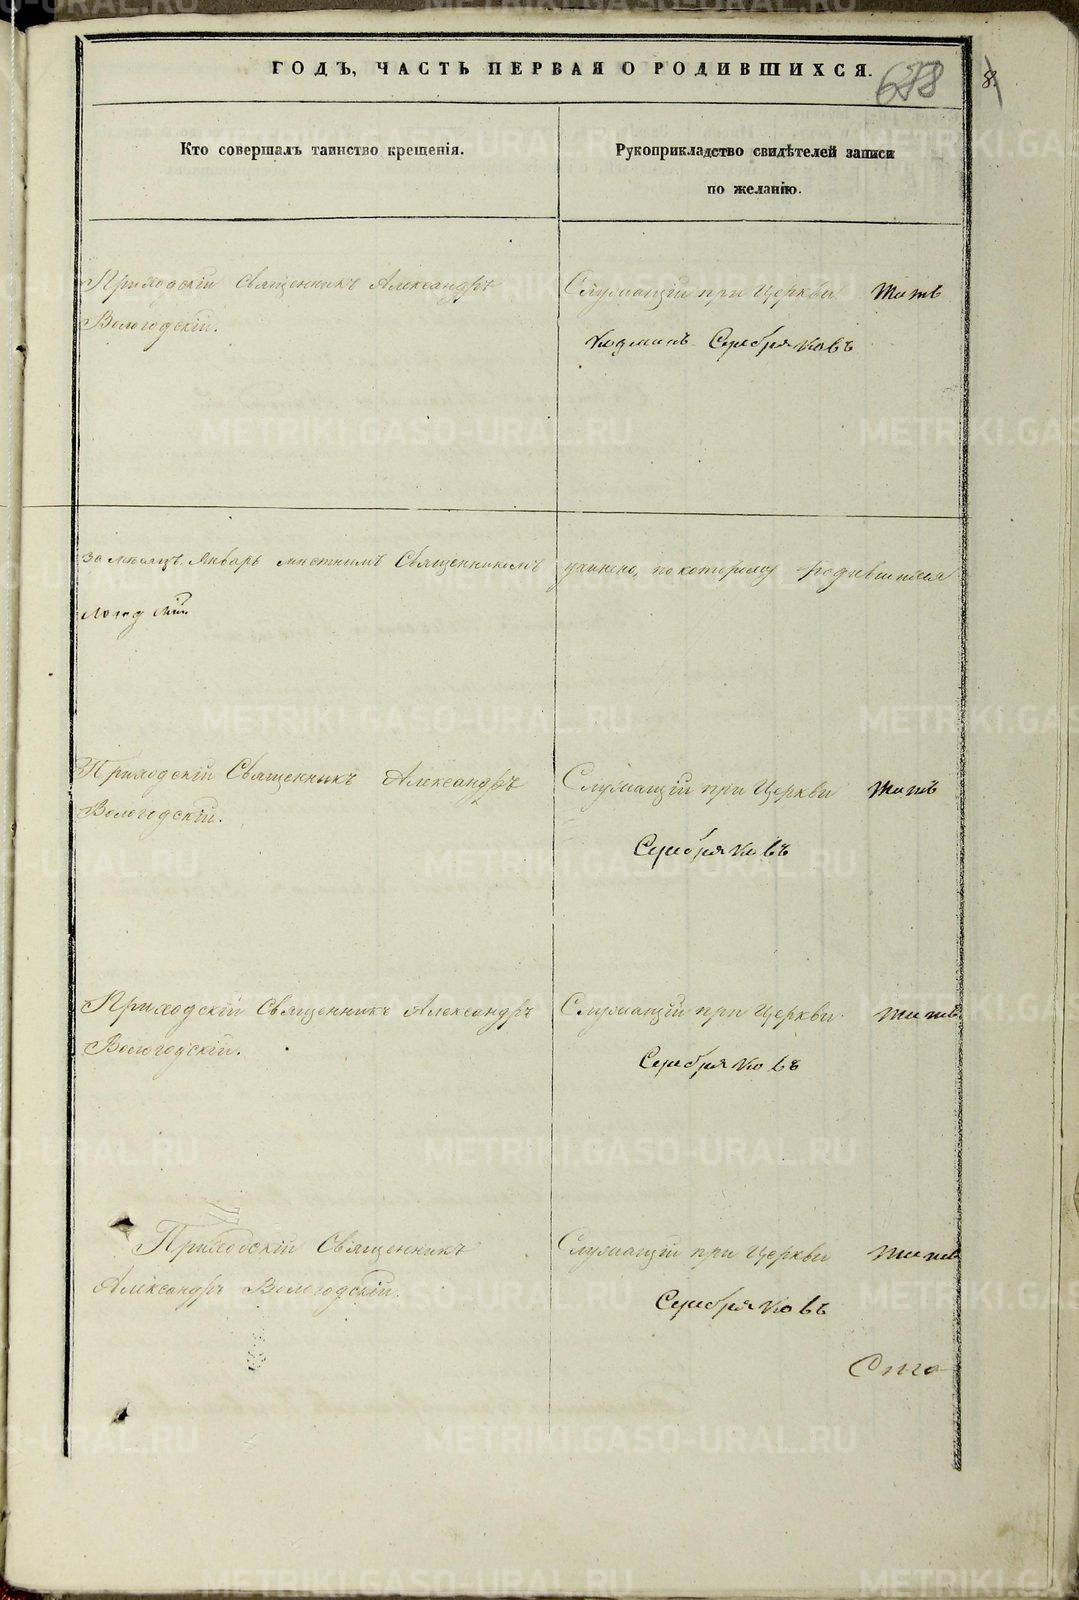 ГОДЪ, ЧАСТЬ ПЕРВАЯ О РОДИВШИХСЯ.
Кто совершалъ таинство крещенія.
Рукоприкладство свидѣтелей записи
по желанію.
Приходскій Священникъ Александръ
Вологодскій.
Служащій при Церкви Титъ
Серебряковъ
за мѣсяцъ Январь мѣстнымъ Священникомъ учинено, по которому родившихся
Приходскій Священникъ Александръ
Вологодскій.
Служащій при Церкви Титъ
Серебряковъ
Приходскій Священникъ Александръ
Вологодскій.
Служащій при Церкви Титъ
Серебряковъ
Приходскій Священникъ
Александръ Вологодскій.
Служащій при Церкви Титъ
Серебряковъ
METRIKI.GASO-URAL.RU